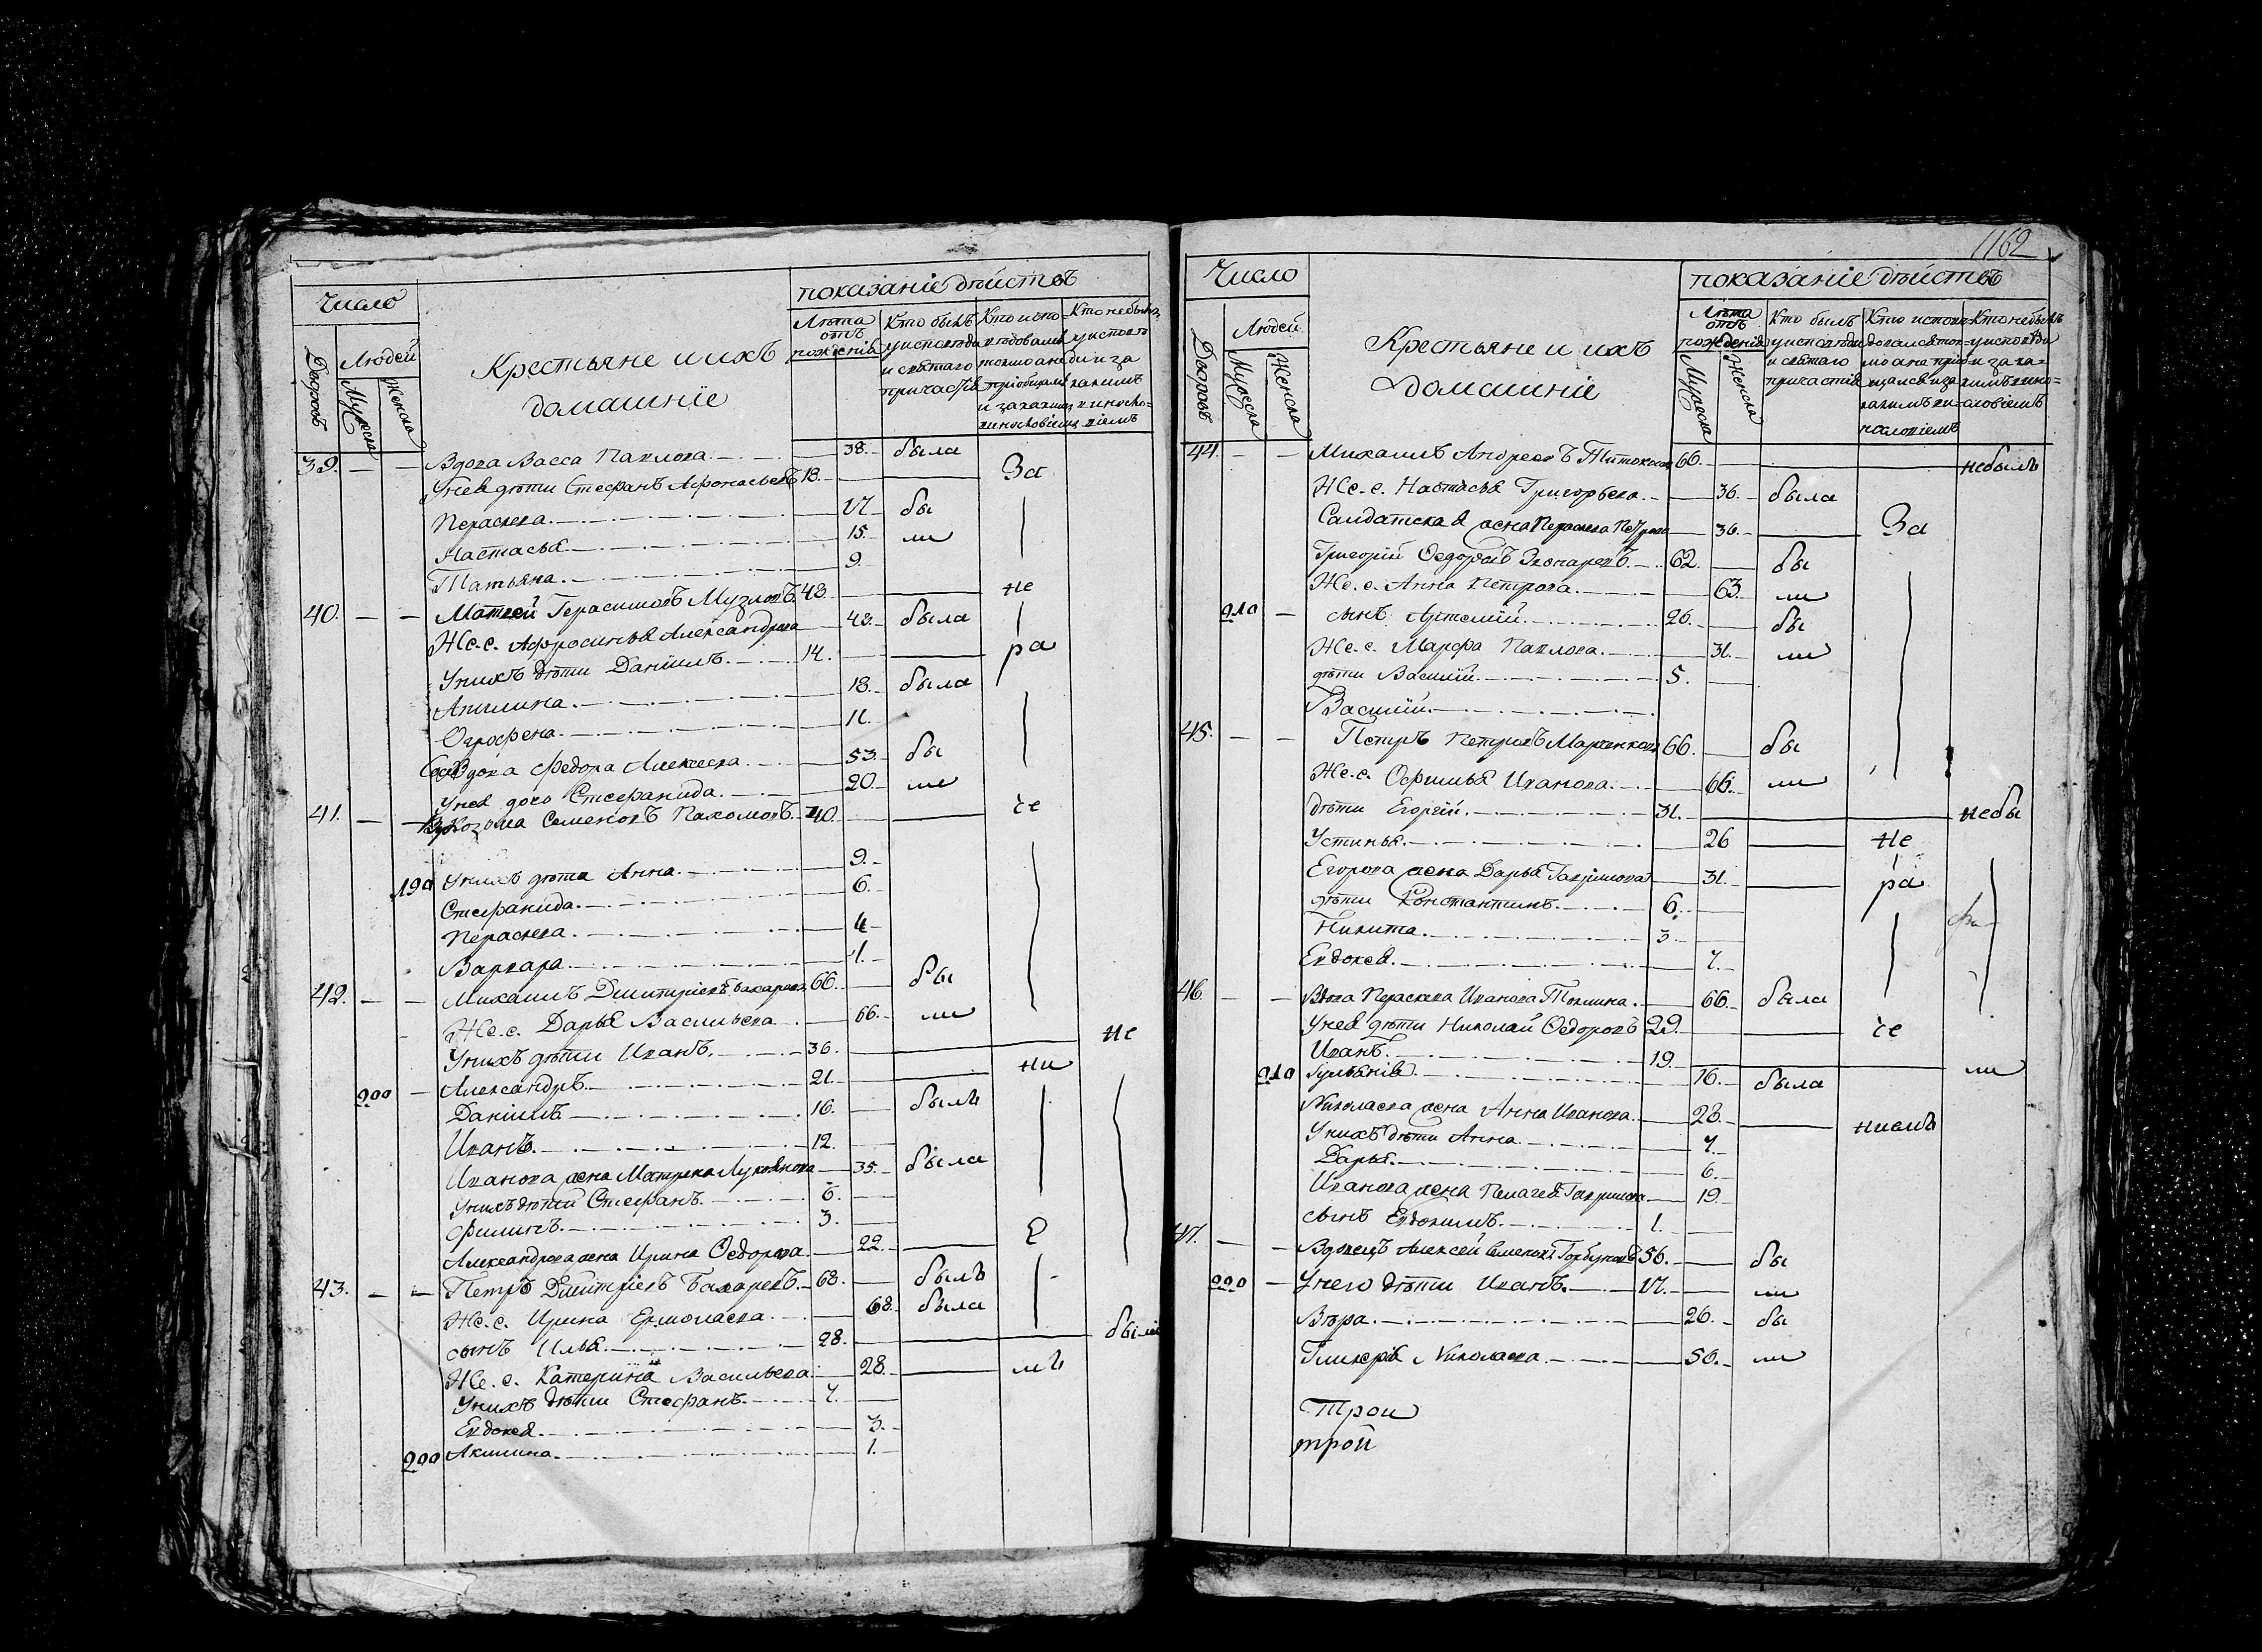 Число
показаніе дѣйствъ
Дворовъ
Людей
Мужеска
Женска
Крестьяне и ихъ
домашніе
Лѣта
отъ
рожденія
Кто былъ
у исповѣди
и святаго
причастія
Кто испо-
вѣдовался
токмо а не
пріобщался
и за какимъ
Кто не былъ
у исповѣ
ди и за
какимъ
39. — — Вдова Васса Павлова. 38. была
У нея дѣти Стефанъ Афонасьевъ 18. За
Пераскева. 17. бы
Настасья. 15. ли
Татьяна. 9.
40. — — Матвей Герасимовъ Музловъ. 43. не
Же. е. Афросинья Александрова 43. была
У нихъ дѣти Даніилъ. 14. ра
Апилина. 18. была
Огрофена. 11.
Вдова Федора Алексеева. 53. бы
У нея дочь Стефанида. 20. ли
41. — — Козма Семеновъ Пахомовъ. 40. че
190 У нихъ дѣти Анна. 9.
Стефанида. 6.
Пераскева. 4
Варвара. 1.
42. — — Михаилъ Дмитріевъ Бахаревъ 66. бы
Же. е. Дарья Васильева 66. ли
У нихъ дѣти Иванъ. 36. не
200 — Александръ. 21. ни
Даніилъ 16. былъ
Иванъ. 12.
Иванова жена Матрена Лукоянова 35. была
У нихъ дѣти Стефанъ. 6.
Филипъ. 3.
Александрова жена Ирина Ѳедорова. 22. Е
43. — — Петръ Дмитріевъ Бахаревъ. 68. былъ
Же. е. Ирина Ермолаева. 68. была
сынъ Илья. 28. были
Же. е. Катерина Васильева. 28. лъ
У нихъ дѣти Стефанъ. 7.
Евдокея. 3.
200 Акилина. 1.
1162
Число
показаніе дѣйствъ
Дворовъ
Людей
Мужеска
Женска
Крестьяне и ихъ
домашніе
Лѣта
отъ
рожденія
Мужеска
Женска
Кто былъ
у исповѣди
и святаго
причастія
44. — — Михаилъ Андреевъ 66. небылъ
Же. е. Настасья Григорьева. 36. была
Салдатская жена Пераскева Петрова 36. За
Григорій Ѳедоровъ 62. бы
Же. е. Анна Петрова. 63. ли
210 — сынъ Артемій. 26. бы
Же. е. Марфа Павлова. 31. ли
дѣти Василій. 5.
Василій.
45. — — Петръ Петровъ 66. бы
Же. е. Офимья Иванова. 66. ли
дѣти Егоргій. 31. небы
Устинья. 26 не
Егорова жена Дарья Гаврилова 31. ра
дѣти Константинъ. 6.
Никита. 3
Евдокея. 7.
46. — — Вдова Пераскева Иванова 66. была
У нея дѣти Николай Ѳедоровъ 29. че
Иванъ. 19. ли
210 Гульянія. 16. была
Николаева жена Анна Иванова. 28. ніемъ
У нихъ дѣти Анна. 7.
Дарья. 6.
Иванова жена Пелагея Гаврилова 19.
сынъ Евдокимъ. 1.
47. — — Вдовецъ Алексей Семеновъ Горбуновъ 56. бы
220 — У него дѣти Иванъ. 17. ли
Вѣра. 26. бы
Гликерія Николаева. 50. ли
Трои
трои